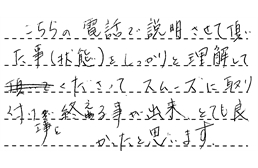 こちらの電話で説明させて頂い
た事(状態)をしっかりと理解して
くださって スムーズに取り
付けが終える事が出来、とても良
事と
かったと思います。